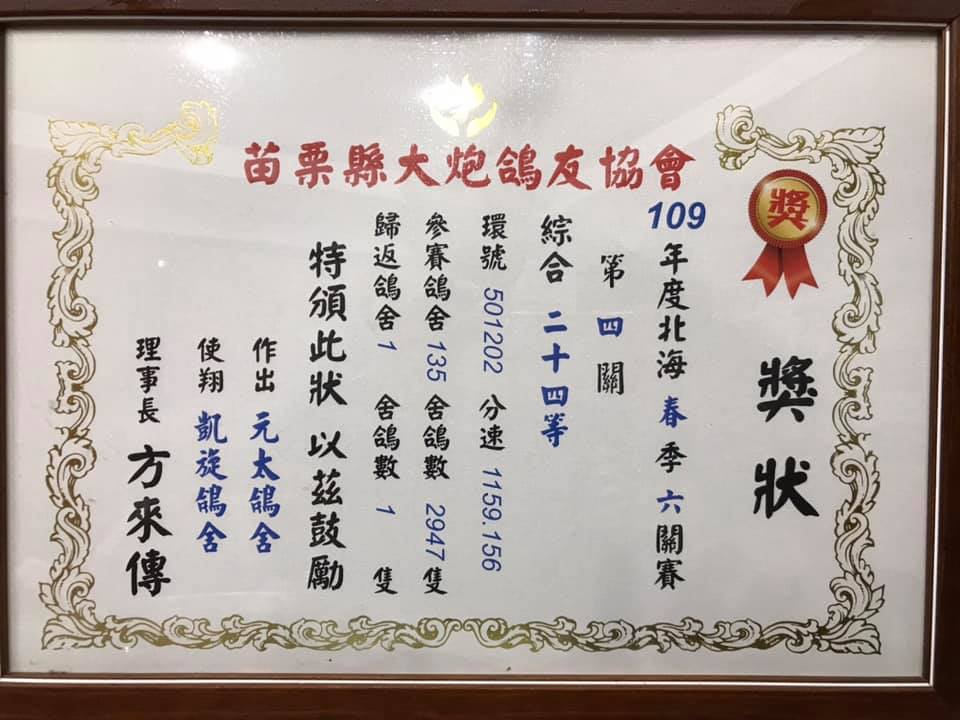 苗栗縣大炮鴿友協會
獎
獎狀
109年度北海春季六關賽
第四關
綜合二十四等
環號 501202 分速 1159.156
參賽鴿舍 135 舍鴿數 2947 隻
歸返鴿舍 1 舍鴿數 1 隻
特頒此狀 以茲鼓勵
作出 元太鴿舍
使翔 凱旋鴿舍
理事長 方來傳